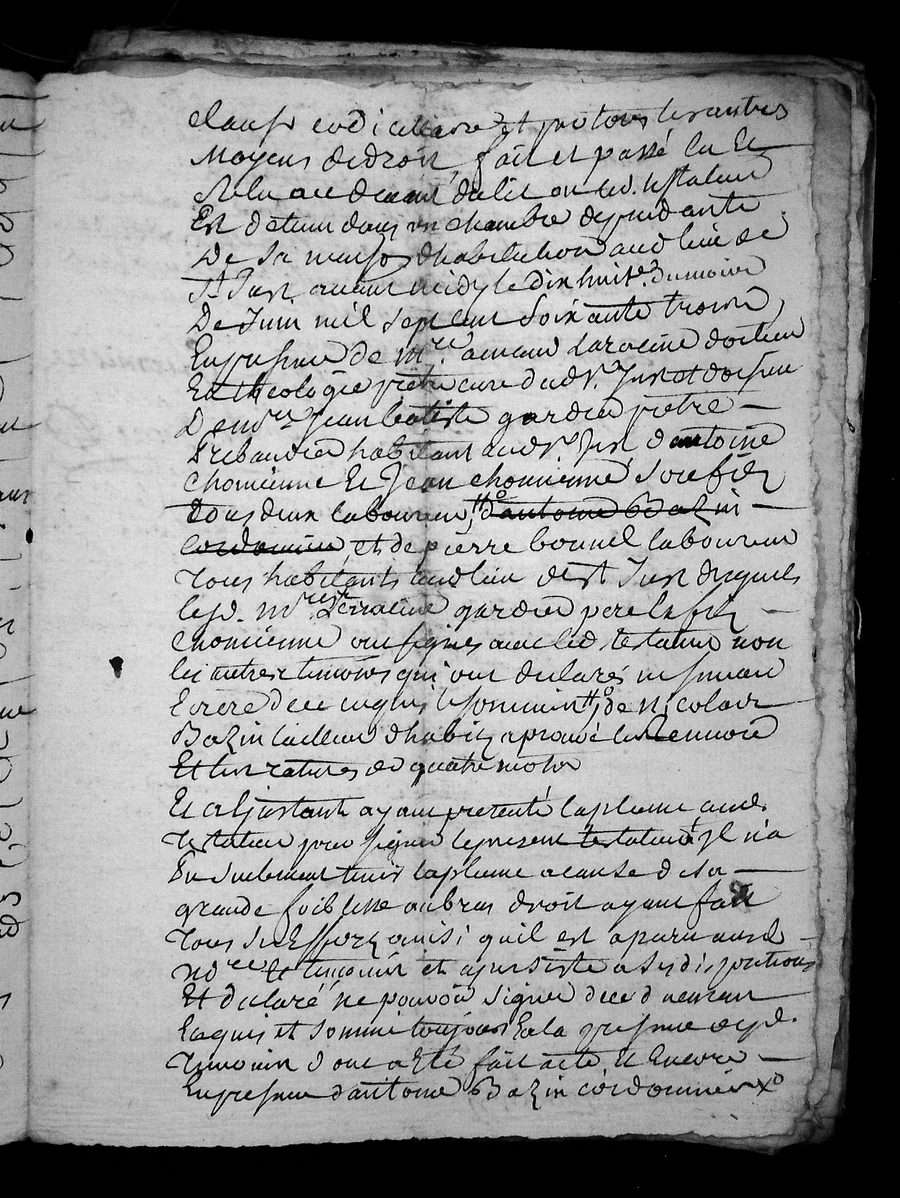 clause codicillaire et par tous les autres
moyens de droit, fait et passé lu et
au devant du lit ou led. testateur
Est detenu dans un chambre dependante
De sa maison d'habitation audt lieu de
St Just avant midy le dix huite. du mois
De Juin mil sept cent soixante trois
En presence de mre. arnaud Laracine docteur
En theologie prêtre curé dudt. st. Just et
De mre Jean batiste gardier prêtre
Prebandier habitant audt st. Just d'antoine
Chomienne et Jean chomienne son fils
tous deux laboureurs, d'antoine Bazin
cordonnier et de pierre bonnel laboureur
Tous habitants audt lieu de st Just desquels
lesd. mres Larracine gardier pere et fils
Chomienne ont signés avec led testateur non
les autres temoins qui ont declarés ne scavoir
Ecrire de ce enquis et sommés, de Nicolas
Bazin tailleur d'habits aprouvé le Renvoi
Et les ratures de quatre mots
Et a l'instant ayant presenté la plume aud.
Testateur pour signer le present testateur, il n'a
Pu seulement tenir la plume a cause de sa
grande foiblesse au bras droit ayant fait
Tous ses efforts ainsi qu'il est aparu audt
nore et temoins et a persisté a ses dispositions
Et declaré ne pouvoir signer de ce duement
Enquis et sommé toujours En la presence desd.
Temoins dont a eté fait acte et Encore
En presence d'antoine Bazin cordonnier